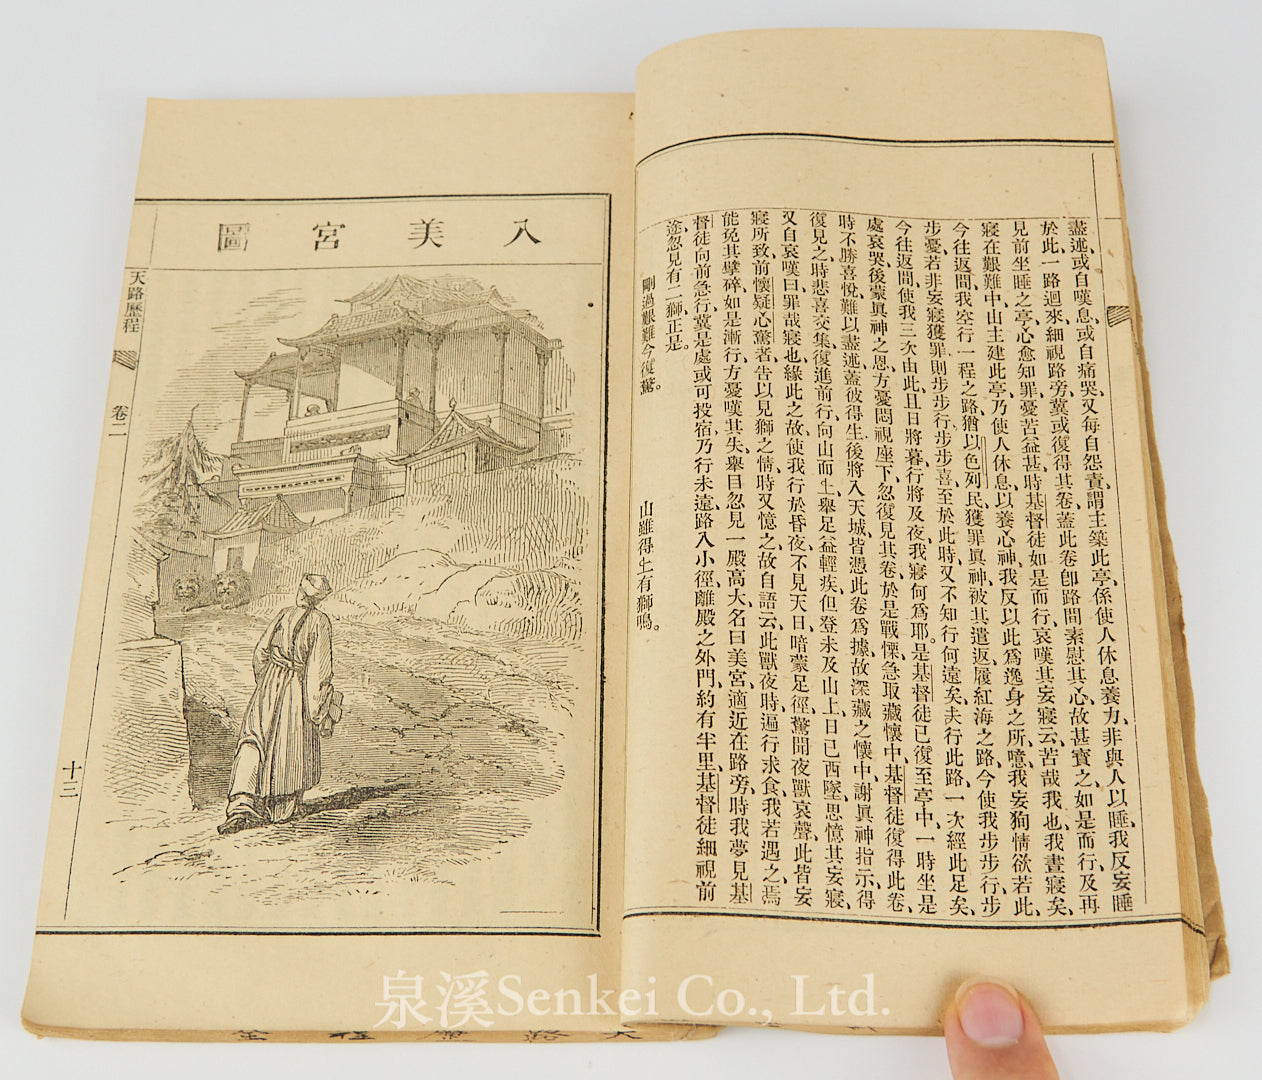 盡述、或自嘆息、或自痛哭、又每自怨責、謂主築此亭、係使人休息養力、非與人以睡、我反妄睡
於此一路迴來、細視路旁、冀或復得其卷、蓋此卷卽路間素慰其心、故甚寶之、如是而行、及再
見前坐睡之亭、心愈知罪、憂苦益甚、時基督徒如是而行、哀嘆其妄寢云、苦哉我也、我晝寢矣、
寢在艱難中、山主建此亭、乃使人休息、以養心神、我反以此爲逸身之所、噫、我妄狥情欲若此、
今往返間、我空行一程之路、猶以色列民獲罪眞神、被其遣返履紅海之路、今使我步步行、步
步憂、若非妄寢獲罪、則步步行、步步喜、至於此時、又不知行何遠矣、夫行此路、一次經此足矣、
今往返間、使我三次由此、且日將暮、行將及夜、我寢何爲耶。是基督徒已復至亭中、一時坐是
處哀哭、後蒙眞神之恩、方憂悶視座下、忽復見其卷、於是戰慄、急取藏懷中、基督徒復得此卷、
時不勝喜悅、難以盡述、蓋彼得生後將入天城、皆憑此卷爲據、故深藏之懷中、謝眞神指示、得
復見之、時悲喜交集、復進前行、向山而上、舉足益輕疾、但登未及山上、日已西墜、思憶其妄寢、
又自哀嘆曰、罪哉寢也、緣此之故、使我行於昏夜、不見天日、暗蒙足徑、驚聞夜獸哀聲、此皆妄
寢所致、前懷疑心驚者、告以見獅之情、時又憶之、故自語云、此獸夜時遍行求食、我若遇之、焉
能免其擘碎、如是漸行、方憂嘆其失、舉目忽見一殿高大、名曰美宮、適近在路旁、時我夢見基
督徒向前急行、冀是處或可投宿、乃行未遠、路入小徑、離殿之外門、約有半里、基督徒細視前
途、忽見有二獅、正是。
剛過艱難今復驚。　山雖得上有獅鳴。
入美宮圖
天路歷程
卷二
十三
泉溪Senkei Co., Ltd.